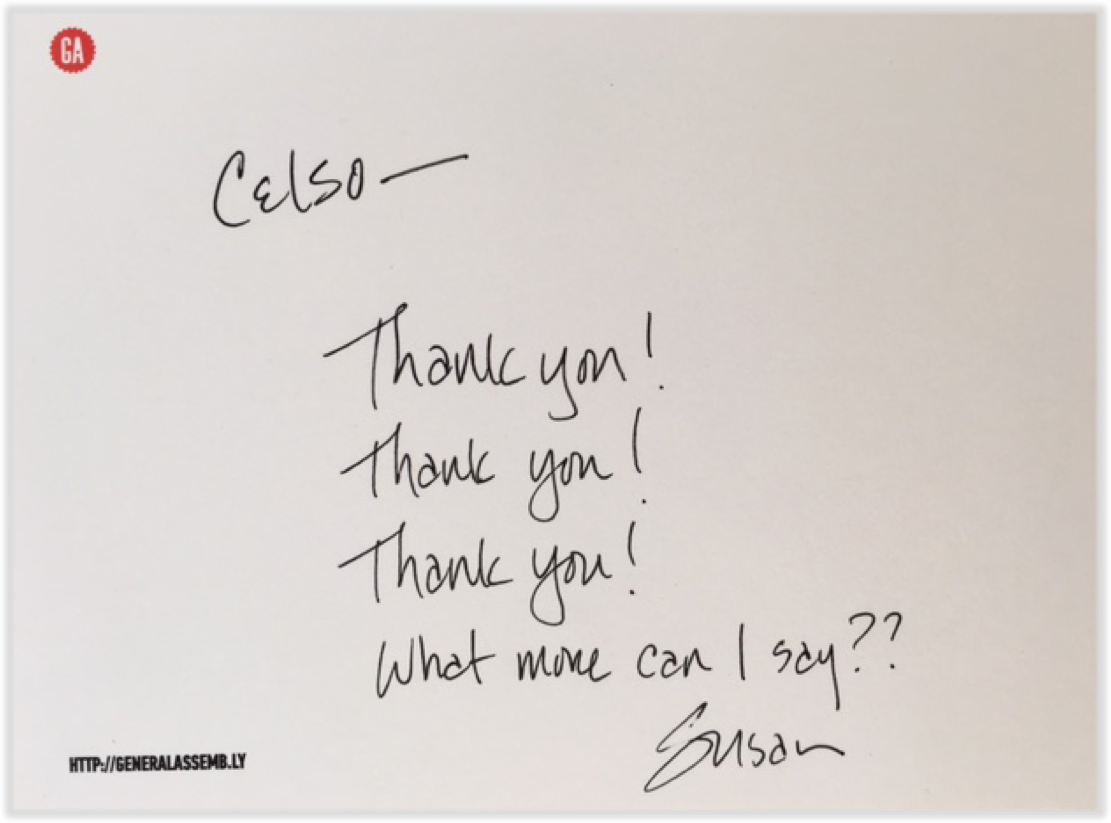 GA
Celso —
Thank you!
Thank you!
Thank you!
What more can I say??
Susan
HTTP://GENERALASSEMB.LY